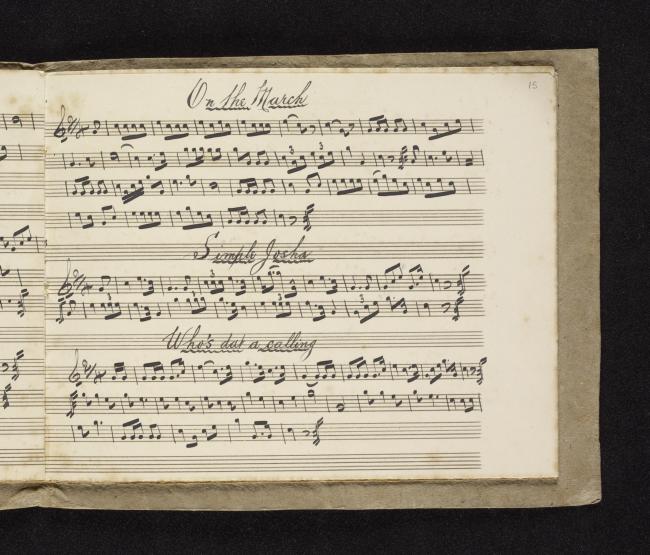 15
On the March
3 3
Simple Josha
3 3
3 3 3
Who's dat a calling